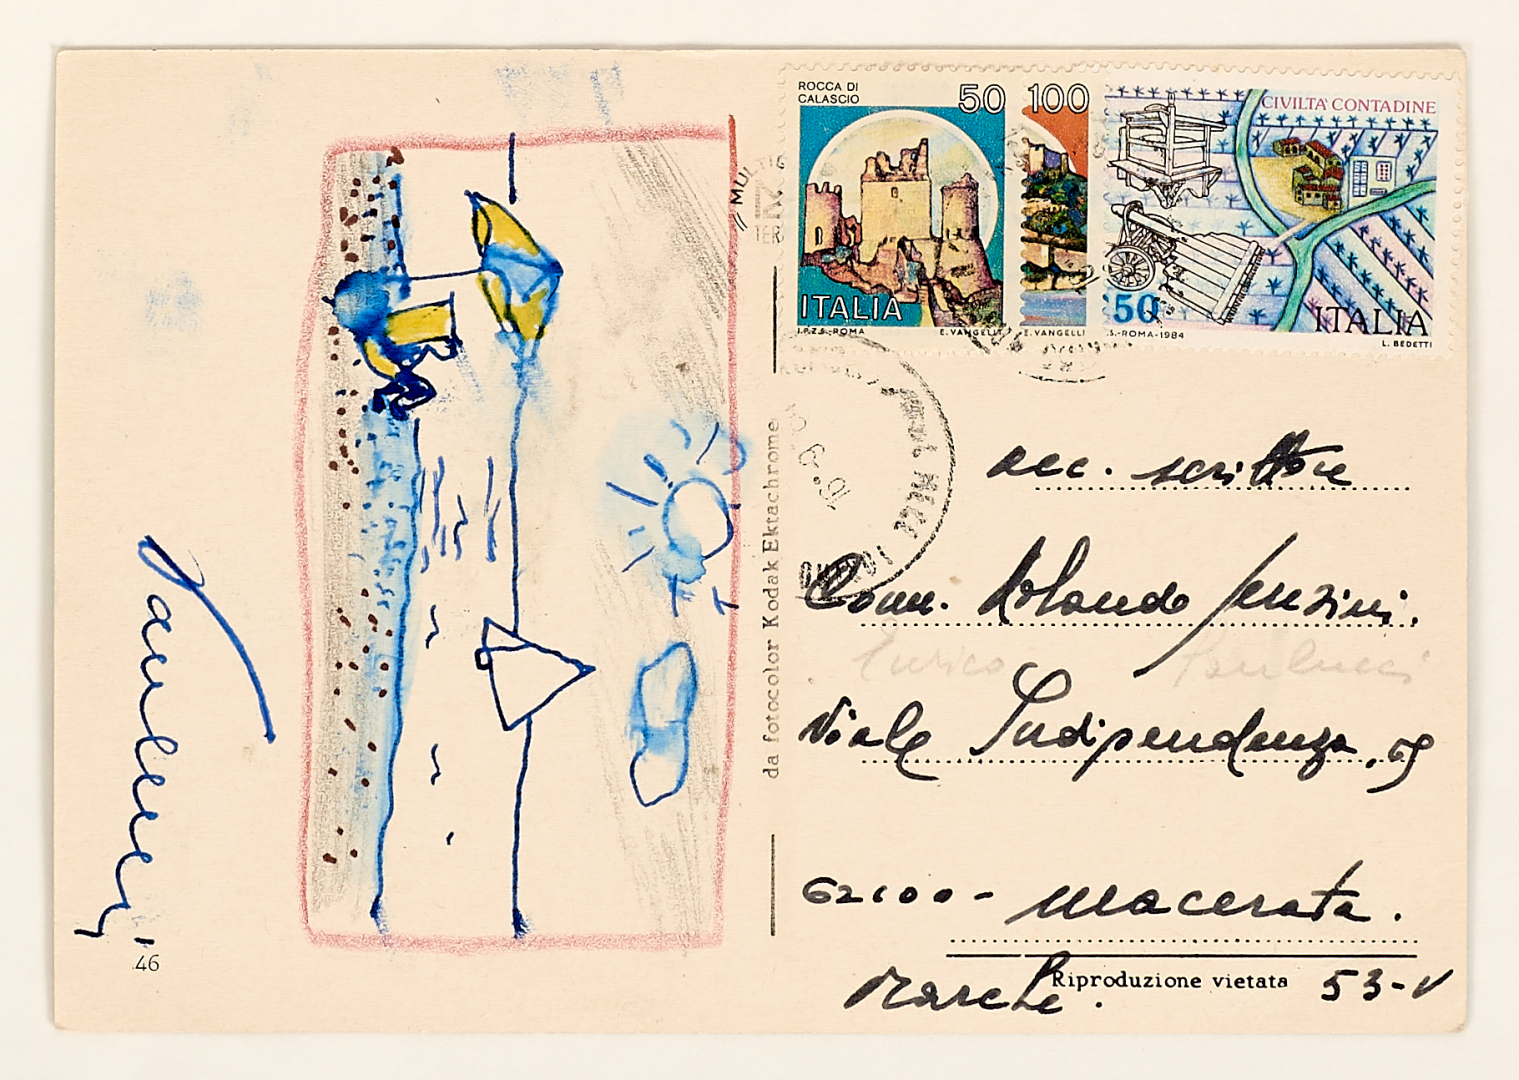 Paulucci
46
// MULTI
da fotocolor Kodak Ektachrome
ROCCA DI
CALASCIO
50
ITALIA
I.P.Z.S.-ROMA
E. VANGELLI
100
E. VANGELLI
CIVILTA' CONTADINE
50
ITALIA
S.-ROMA-1984
L. BEDETTI
scrittore
Comm. Rolando
Enrico Paulucci
Viale Indipendenza, 59
62100- Macerata.
Marche.
Riproduzione vietata
53-V